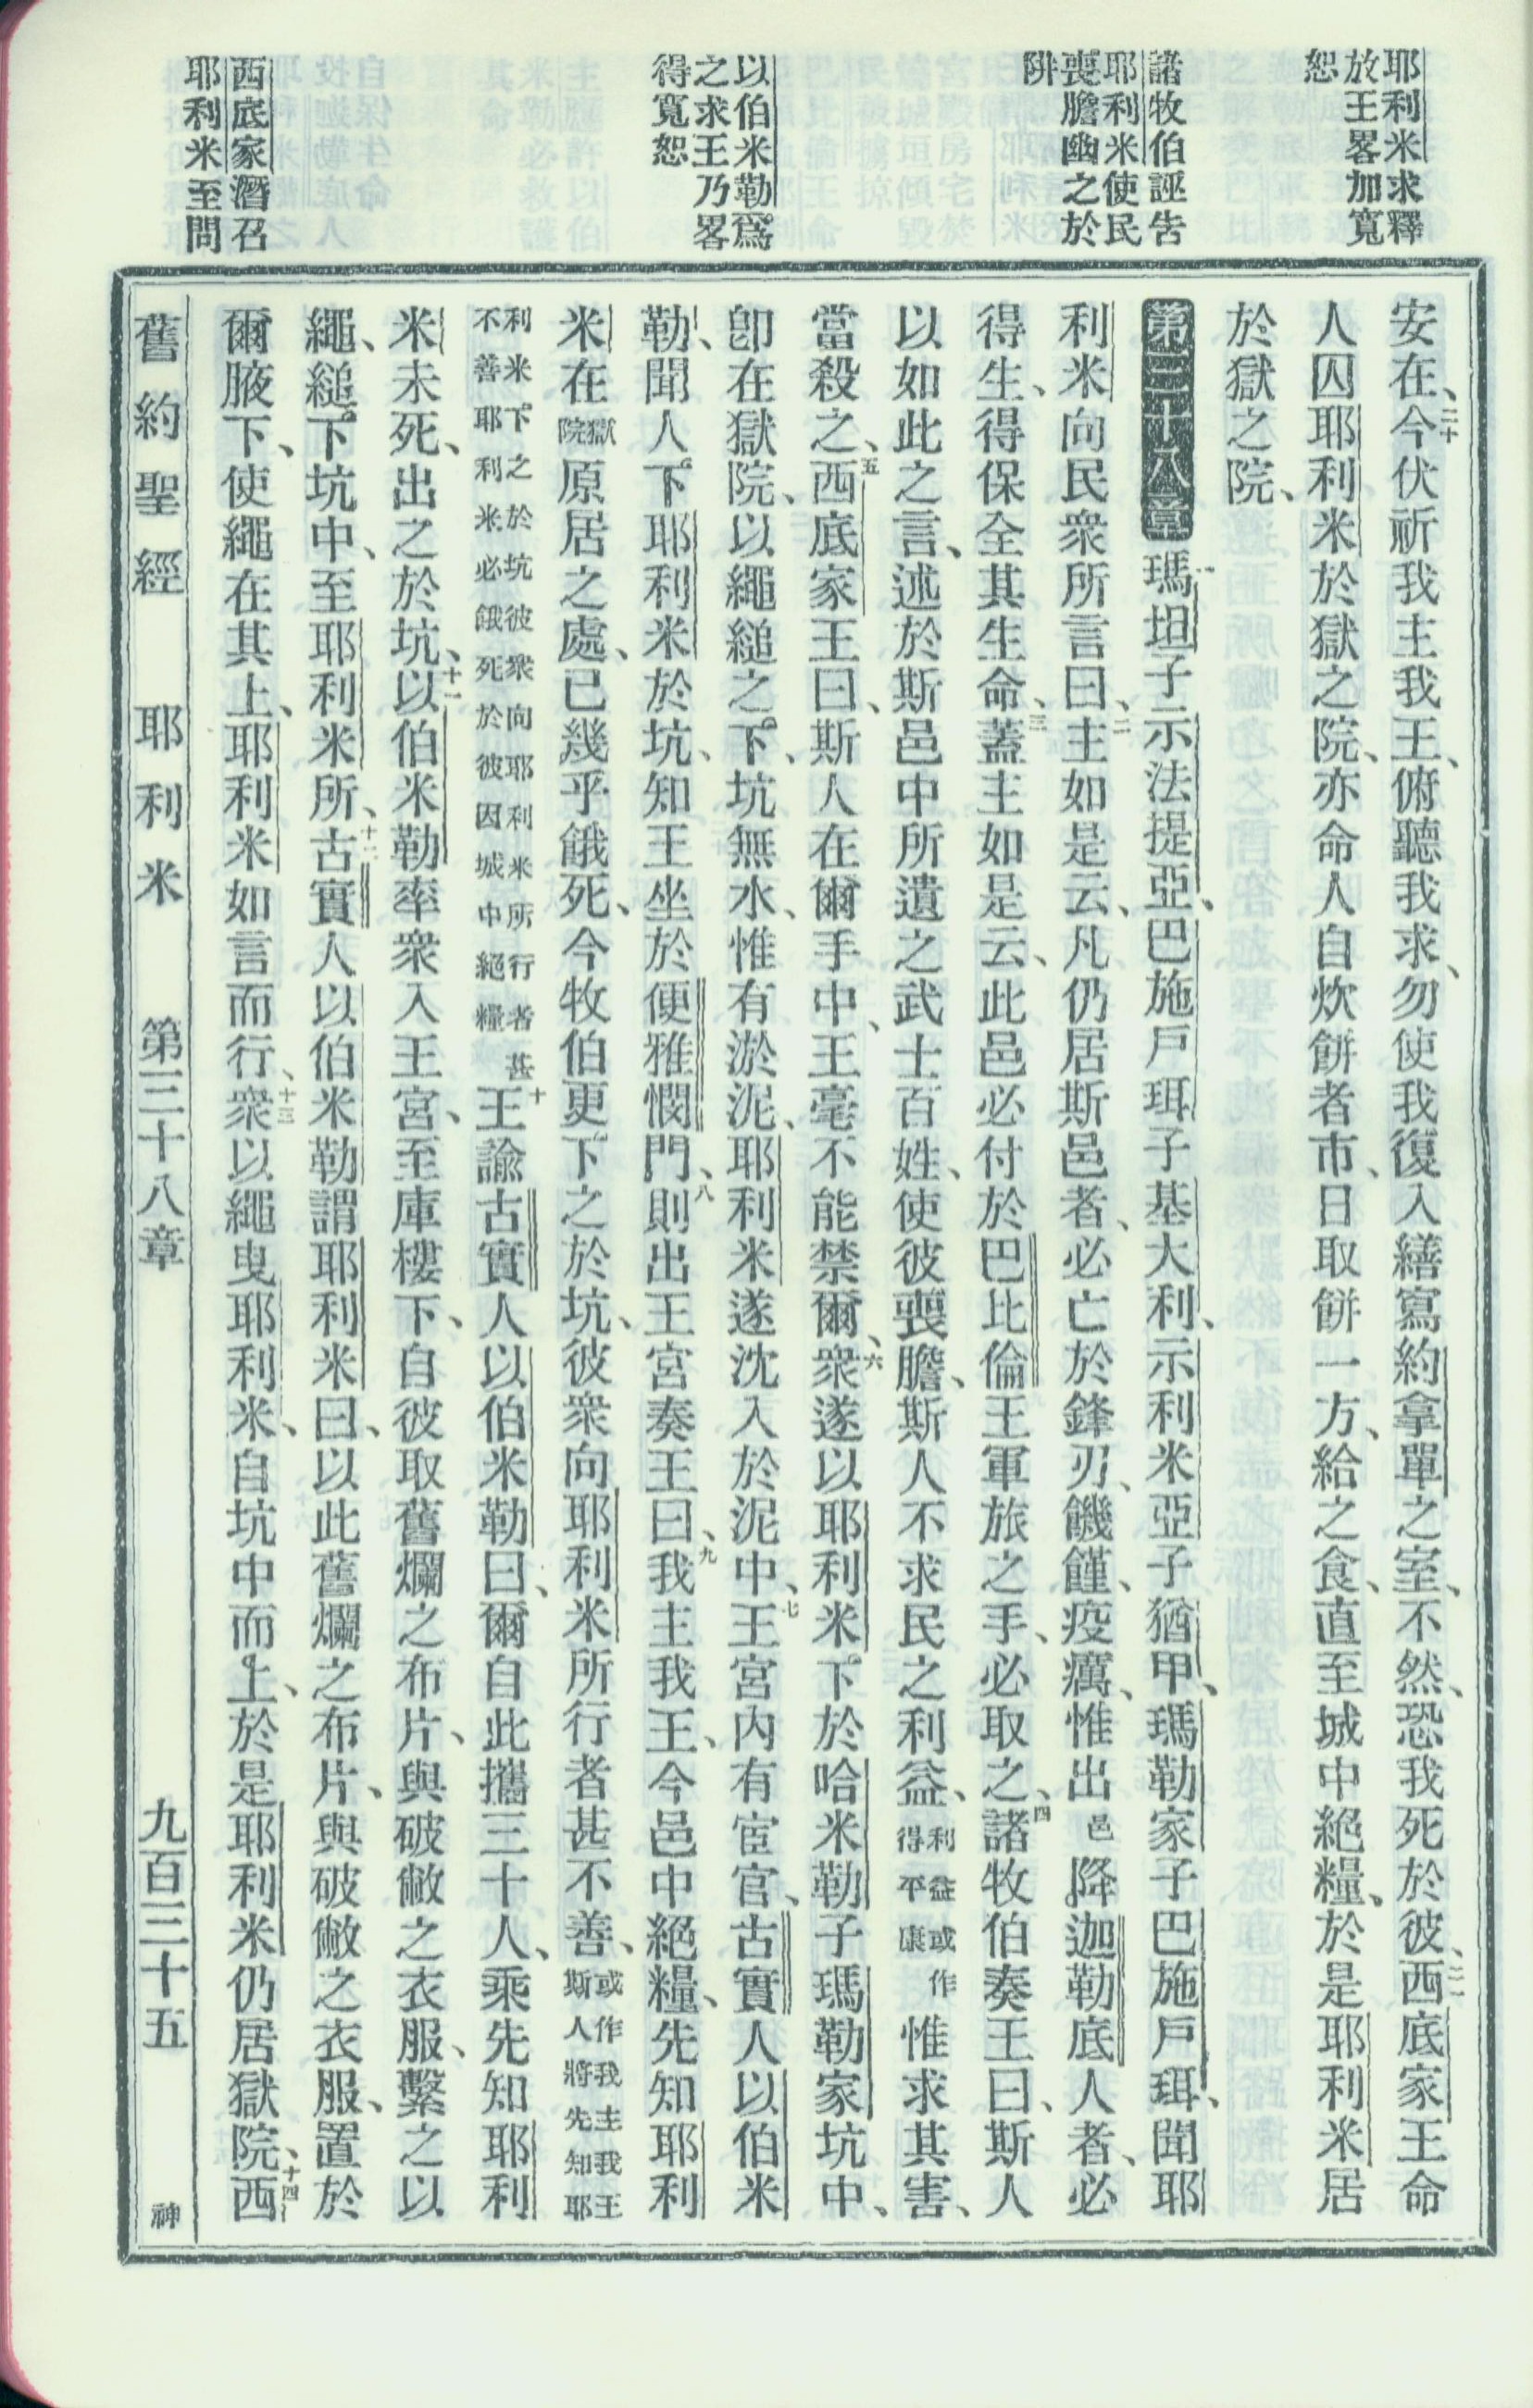 耶利米求釋
放王畧加寬
恕
諸牧伯誣吿
耶利米使民
喪膽幽之於
阱
以伯米勒爲
之求王乃畧
得寬恕
西底家潛召
耶利米至問
安在、二十今伏祈我主我王、俯聽我求、勿使我復入繕寫約拿單之室、不然、恐我死於彼、二一西底家王命
人囚耶利米於獄之院、亦命人自炊餅者市、日取餅一方、給之食、直至城中絕糧、於是耶利米居
於獄之院、
第三十八章 一瑪坦子示法提亞、巴施戶珥子基大利、示利米亞子猶甲、瑪勒家子巴施戶珥、聞耶
利米向民衆所言曰、二主如是云、凡仍居斯邑者、必亡於鋒刃、饑饉、疫癘、惟出邑降迦勒底人者、必
得生、得保全其生命、三蓋主如是云、此邑必付於巴比倫王軍旅之手、必取之、四諸牧伯奏王曰、斯人
以如此之言、述於斯邑中所遺之武士百姓、使彼喪膽、斯人不求民之利益、利益或作得平康惟求其害、
當殺之、五西底家王曰、斯人在爾手中、王毫不能禁爾、六衆遂以耶利米下於哈米勒子瑪勒家坑中、
卽在獄院、以繩縋之下、坑無水、惟有淤泥、耶利米遂沈入於泥中、七王宮內有宦官、古實人以伯米
勒、聞人下耶利米於坑、知王坐於便雅憫門、八則出王宮奏王曰、九我主我王、今邑中絕糧、先知耶利
米在獄院原居之處、已幾乎餓死、今牧伯更下之於坑、彼衆向耶利米所行者甚不善、或作我主我王斯人將先知耶
利米下之於坑彼衆向耶利米所行者甚不善耶利米必餓死於彼因城中絕糧十王諭古實人以伯米勒曰、爾自此攜三十人、乘先知耶利
米未死、出之於坑、十一以伯米勒率衆入王宮、至庫樓下、自彼取舊爛之布片、與破敝之衣服、繫之以
繩、縋下坑中、至耶利米所、十二古實人以伯米勒謂耶利米曰、以此舊爛之布片、與破敝之衣服、置於
爾腋下、使繩在其上、耶利米如言而行、十三衆以繩曳耶利米、自坑中而上、於是耶利米仍居獄院、十四西
舊約聖經 耶利米 第三十八章 九百三十五 神